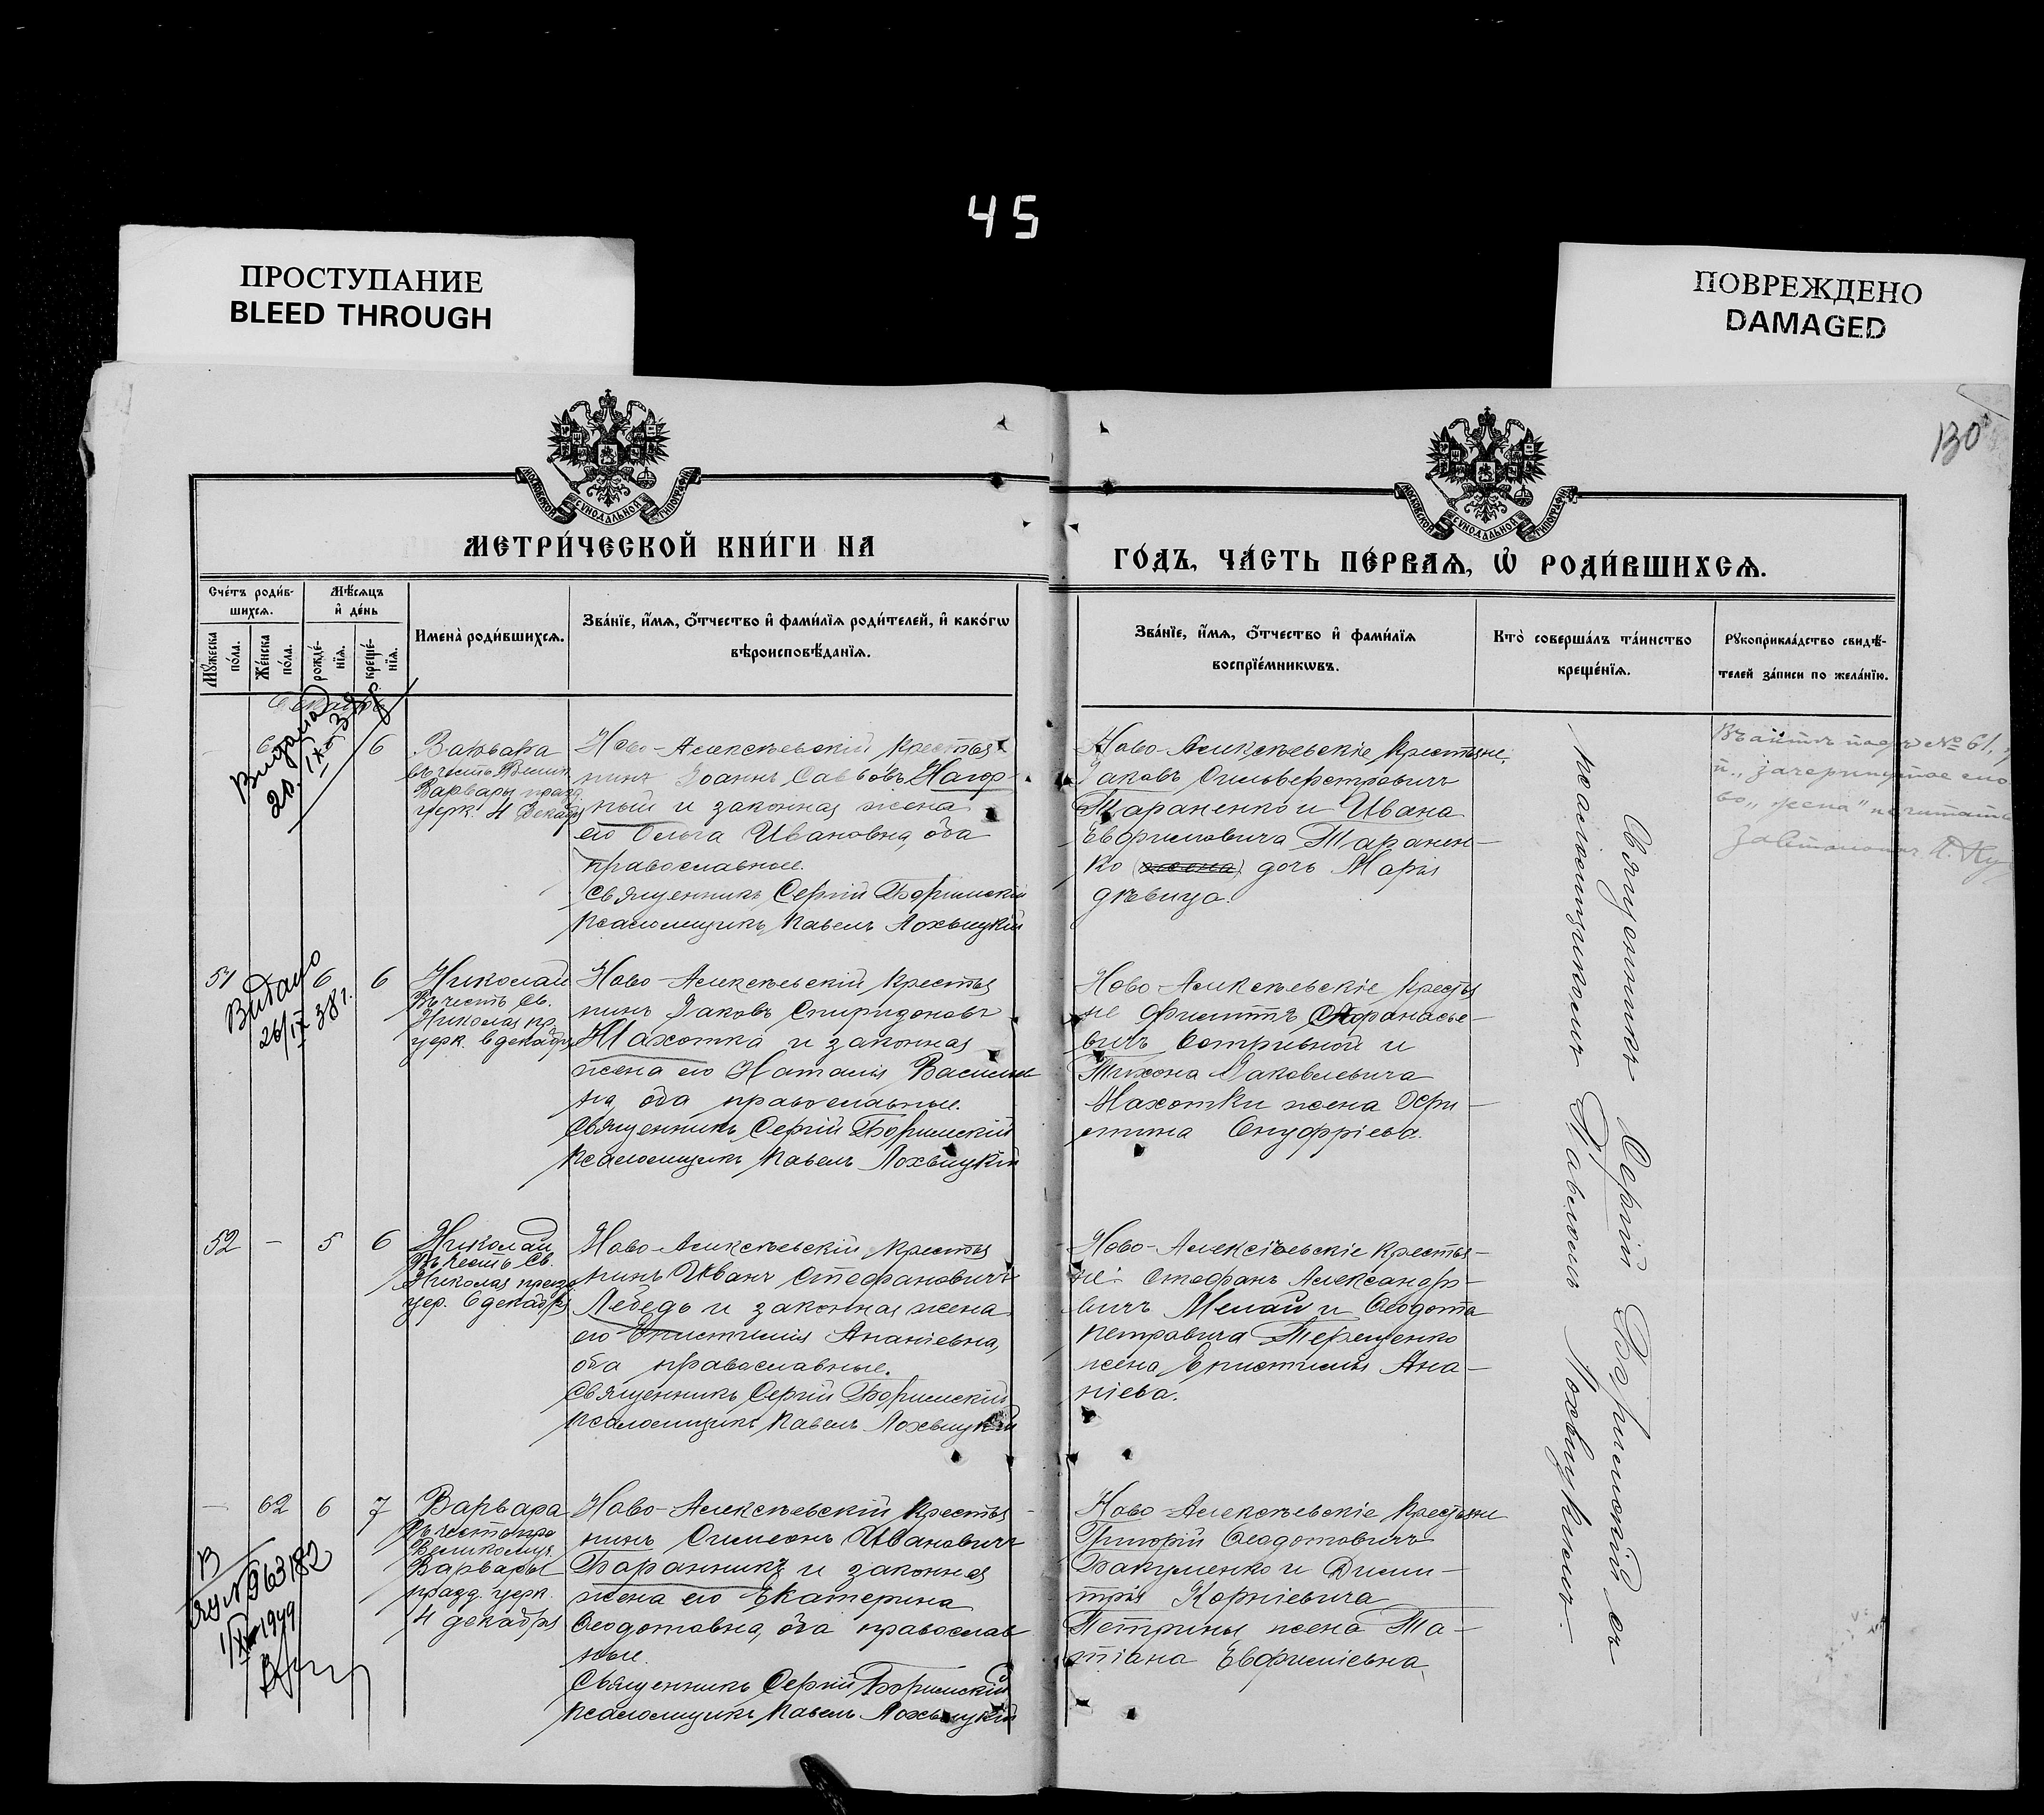 45
ПРОСТУПАНИЕ
BLEED THROUGH
ПОВРЕЖДЕНО
DAMAGED
130
МОСКОВСКОЙ СѴНОДАЛЬНОЙ ТИПОГРАФІИ
МОСКОВСКОЙ СѴНОДАЛЬНОЙ ТИПОГРАФІИ
МЕТРИ́ЧЕСКОЙ КНИ́ГИ НА
ГО́ДЪ, ЧА́СТЬ ПЕ́РВАѦ, Ѽ РОДИ́ВШИХСѦ.
Сче́тъ роди́в-
шихсѧ.
Мꙋ́жеска по́ла.
Же́нска по́ла.
Мѣ́сѧцъ
и҆ де́нь
рожде́-
нїѧ.
креще́-
нїѧ.
Имена̀ роди́вшихсѧ.
Зва́нїе, и҆́мѧ, ѻ҆́тчество и҆ фами́лїѧ роди́телей, и҆ како́гѡ
вѣроисповѣ́данїѧ.
Зва́нїе, и҆́мѧ, ѻ҆́тчество и҆ фами́лїѧ
воспрїе́мникѡвъ.
Кто̀ соверша́лъ та́инство
креще́нїѧ.
Рꙋкоприкла́дство свидѣ́-
телей за́писи по жела́нїю.
Декабрь
6
Варвара
въ честь Велик.
Варвары празд.
церк. 4 Декабря
Ново-Алексѣевскій крестья
нинъ Іоаннъ Саввовъ Нагор-
ный и законная жена
его Ольга Ивановна, оба
православные.
Священникъ Сергій Боримскій
Псаломщикъ Павелъ Лохвицкій
Ново-Алексѣевскіе крестьяне,
Іаковъ Сильвестровичъ
Тараненко и Ивана
Евфимовича Таранен-
ко (жена) дочь Марія
дѣвица.
Въ актѣ подъ № 61,
зачеркнутое сло
во „жена" не читать
Выдано
26/IX 38 г.
51
6
6
Николай
Въ честь Св.
Николая пр.
церк. 6 декабря
Ново-Алексѣевскій крестья
нинъ Іаковъ Спиридоновъ
Махотка и законная
жена его Наталія Василье
на, оба православные.
Священникъ Сергій Боримскій
Псаломщикъ Павелъ Лохвицкій
Ново-Алексѣевскіе крестья
не Филиппъ Афанасье-
вичъ
и
Тихона Іаковлевича
Махотки жена Ефи-
Онуфріева.
52
-
5
6
Николай
Въ честь Св.
Николая празд.
цер. 6 декабря
Ново-Алексѣевскій крестья
нинъ Иванъ Стефановичъ
Лебедь и законная жена
его Епистимія Ананіевна,
оба православные.
Священникъ Сергій Боримскій
Псаломщикъ Павелъ Лохвицкій
Ново-Алексѣевскіе крестья-
не: Стефанъ Александро-
вичъ и Ѳеодота
Петровича Терещенко
жена Епистимія Ана-
ніева.
-
62
6
7
Варвара
Въ честь
Великомуч.
Варвары
празд. церк.
4 декабря
Ново-Алексѣевскій крестья
нинъ Симеонъ Ивановичъ
Баранникъ и законная
жена его Екатерина
Ѳеодотовна, оба православ
ные.
Священникъ Сергій Боримскій
Псаломщикъ Павелъ Лохвицкій
Ново-Алексѣевскіе крестьяне
Григорій Ѳеодотовичъ
Бакуменко и Дими-
трія Корніевича
Петрины жена Та-
тіана Евфиміевна
963182
1949
Священникъ Сергій Боримскій съ
псаломщикомъ Павломъ Лохвицкимъ.